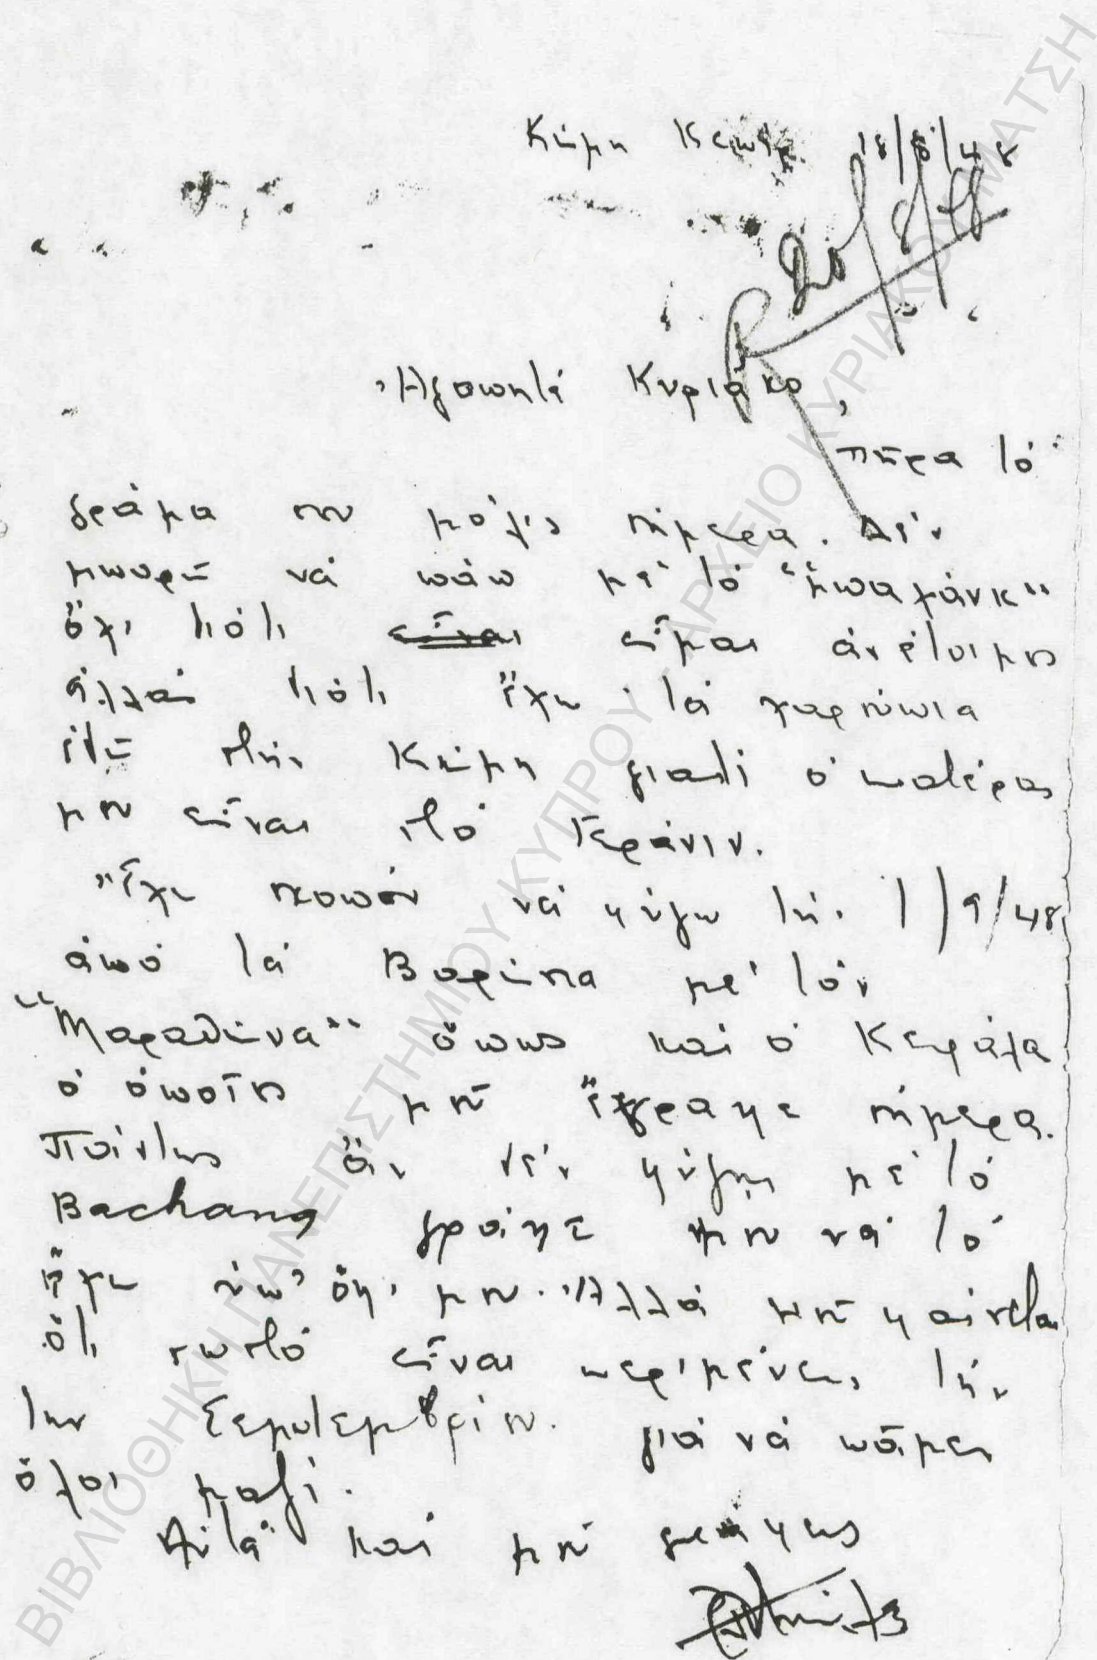 Κώμη Κεπήρ 18/8/48
R 20/8/48
Ἀγαπητέ Κυριάκο,
πῆρα τό
γράμμα σου μόλις σήμερα. Δέν
μπορῶ νά πάω μέ τό "Μπαχάνκ"
ὄχι διότι εἶναι εἶμαι ἀνέτοιμος
ἀλλά διότι ἔχω τά χαρούπια
ἐδῶ στήν Κώμη γιατί ὁ πατέρας
μου εἶναι στό Γεράνιν.
Ἔχω σκοπόν νά φύγω τήν 1/9/48
ἀπό τά Βαρώσια μέ τόν
"Μαραθώνα" ὅπως καί ὁ Κεφάλα
ὁ ὁποῖος μοῦ ἔγραψε σήμερα.
Πάντως ἄν δέν φύγῃς μέ τό
Bachang γράψε μου νά τό
ἔχω ὑπ' ὄψι μου. Ἀλλά μοῦ φαίνεται
ὅτι σωστό εἶναι περιμένεις τήν
1ην Σεπτεμβρίου γιά νά πᾶμε
ὅλοι μαζί.
Αὐτά καί μοῦ γράφεις
ΒΙΒΛΙΟΘΗΚΗ ΠΑΝΕΠΙΣΤΗΜΙΟΥ ΚΥΠΡΟΥ - ΑΡΧΕΙΟ ΚΥΡΙΑΚΟΥ ΜΑΤΣΗ